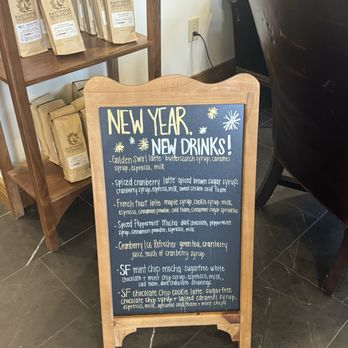 NEW YEAR,
NEW DRINKS!
- Golden Swirl latte: butterscotch syrup, caramel
syrup, espresso, milk
- Spiced cranberry latte: spiced brown sugar syrup,
espresso, milk, sweet cream cold foam
- French toast latte: maple syrup, cookie syrup, milk,
espresso, cinnamon powder, cold foam, cinnamon sugar
- Spiced Peppermint Mocha: dark chocolate, peppermint
syrup, cinnamon powder, espresso, milk
- Cranberry Ice Refresher: green tea, cranberry
juice, touch of cranberry syrup
- SF mint chip mocha: sugarfree white
chocolate + mint chip syrup, espresso, milk,
cold foam, dark chocolate
- SF chocolate chip cookie latte: sugarfree
chocolate chip syrup + salted caramel syrup,
espresso, milk, optional cold foam + mini chips